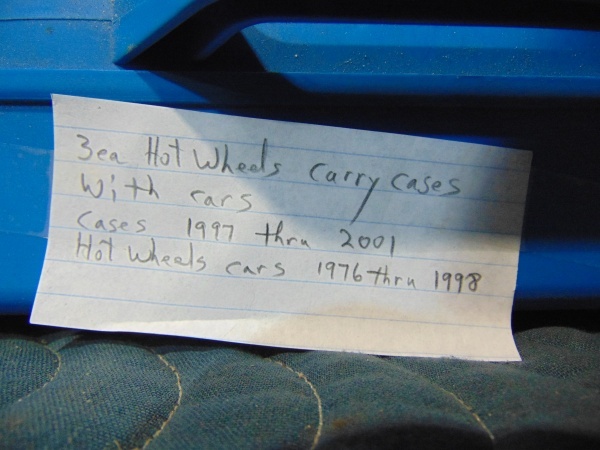 3ea Hot Wheels Carry Cases
With cars
Cases 1997 thru 2001
Hot Wheels cars 1976 thru 1998